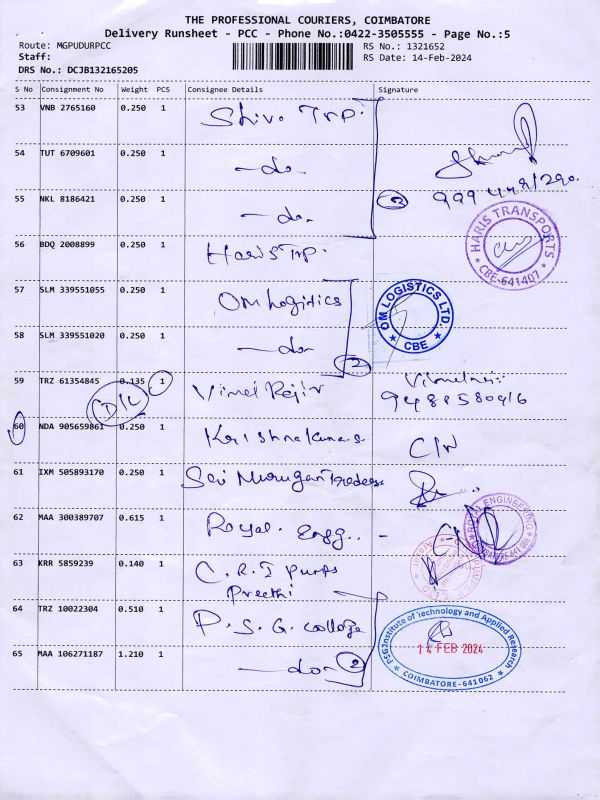 THE PROFESSIONAL COURIERS, COIMBATORE
Delivery Runsheet - PCC - Phone No.:0422-3505555 - Page No.:5
Route: MGPUDURPCC RS No.: 1321652
Staff: RS Date: 14-Feb-2024
DRS No.: DCJB132165205
S No Consignment No Weight PCS Consignee Details Signature
53 VNB 2765160 0.250 1 Shiva Trp.
54 TUT 6709601 0.250 1 -do-
55 NKL 8186421 0.250 1 -do-
HARIS TRANSPORTS
CBE-641407
56 BDQ 2008899 0.250 1 Haris Trp
57 SLM 339551055 0.250 1 OM Logitics
OM LOGISTICS LTD.
CBE
58 SLM 339551020 0.250 1 -do- 2
59 TRZ 61354845 0.135 1 Vimel Rajiv
D/L
60 NDA 905659861 0.250 1 Krishnakumar C/N
61 IXM 505893170 0.250 1 Sri Murugan Traders
62 MAA 300389707 0.615 1 Royal. Engg..
ROYAL ENGINEERING
63 KRR 5859239 0.140 1 C.R.I Pumps
Preethi
64 TRZ 10022304 0.510 1 P.S.G. College
PSG Institute of Technology and Applied Research
14 FEB 2024
COIMBATORE-641062
65 MAA 106271187 1.210 1 -do- 2